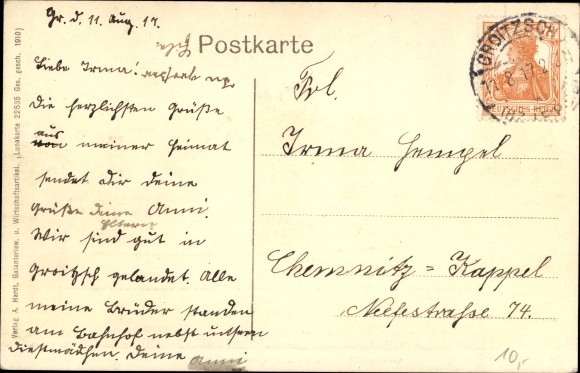 Gr. d. 11. Aug. 17.
Postkarte
Liebe Irma!
Die herzlichsten Grüße
aus
von meiner Heimat
sendet Dir deine
Grüße deine Anni.
Eltern
Wir sind gut in
Groitzsch gelandet. Alle
meine Brüder standen
am Bahnhof nebst unserm
Dienstmädchen. Deine Anni
Frl.
Irma Hempel
Chemnitz = Kappel
Neefestraße 74.
GROITZSCH
11.8.17.
DEUTSCHES REICH
Verlag A. Hardt, u. Wirtschaftsartikel. „Lunakarte 22535 Ges. gesch. 1910)
10,-